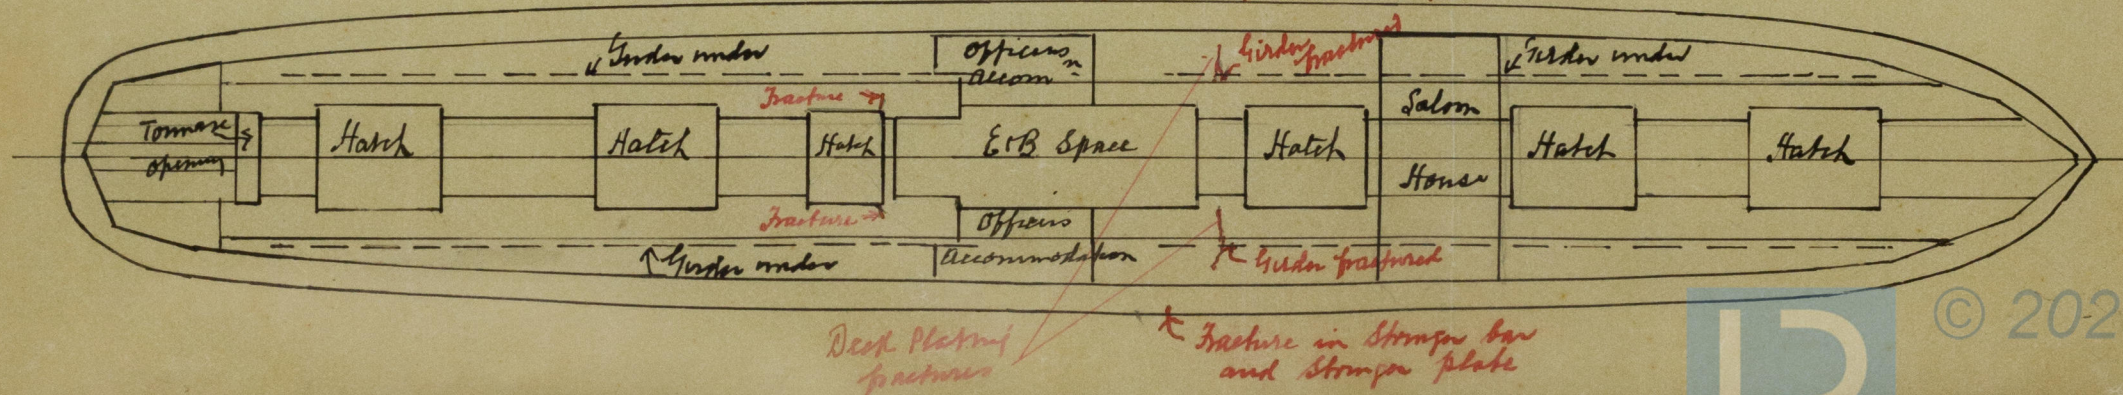 Girder under
Officers
Accom n
Girder
fractured
Girder under
Fracture
Saloon
Tonnage
opening
Hatch
Hatch
Hatch
E&B Space
Hatch
Hatch
Hatch
House
Fracture
Officers
Accommodation
Girder under
Girder fractured
Deck Plating
fractures
Fracture in Stringer bar
and Stringer plate
© 202